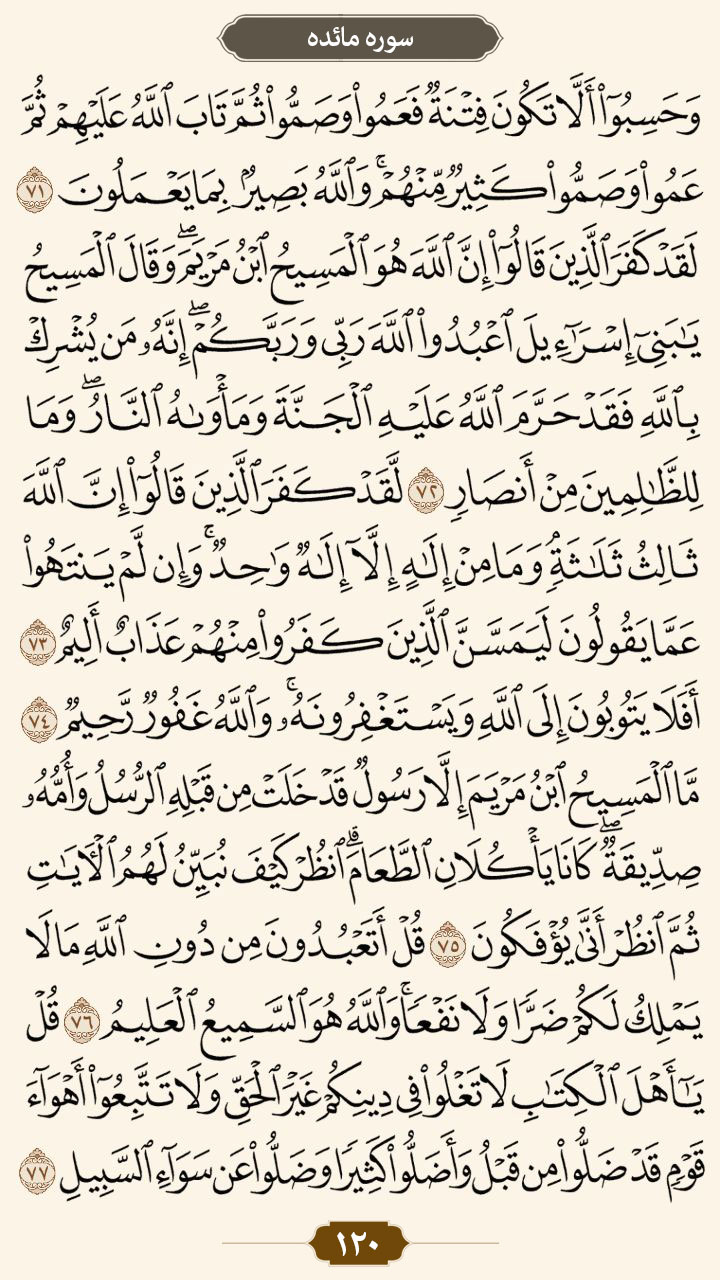 سوره مائده
وَحَسِبُوٓا۟ أَلَّا تَكُونَ فِتْنَةٌ فَعَمُوا۟ وَصَمُّوا۟ ثُمَّ تَابَ ٱللَّهُ عَلَيْهِمْ ثُمَّ
عَمُوا۟ وَصَمُّوا۟ كَثِيرٌ مِّنْهُمْ ۚ وَٱللَّهُ بَصِيرٌۢ بِمَا يَعْمَلُونَ ٧١
لَقَدْ كَفَرَ ٱلَّذِينَ قَالُوٓا۟ إِنَّ ٱللَّهَ هُوَ ٱلْمَسِيحُ ٱبْنُ مَرْيَمَ ۖ وَقَالَ ٱلْمَسِيحُ
يَـٰبَنِىٓ إِسْرَٰٓءِيلَ ٱعْبُدُوا۟ ٱللَّهَ رَبِّى وَرَبَّكُمْ ۖ إِنَّهُۥ مَن يُشْرِكْ
بِٱللَّهِ فَقَدْ حَرَّمَ ٱللَّهُ عَلَيْهِ ٱلْجَنَّةَ وَمَأْوَىٰهُ ٱلنَّارُ ۖ وَمَا
لِلظَّـٰلِمِينَ مِنْ أَنصَارٍ ٧٢ لَّقَدْ كَفَرَ ٱلَّذِينَ قَالُوٓا۟ إِنَّ ٱللَّهَ
ثَالِثُ ثَلَـٰثَةٍ ۘ وَمَا مِنْ إِلَـٰهٍ إِلَّآ إِلَـٰهٌ وَٰحِدٌ ۚ وَإِن لَّمْ يَنتَهُوا۟
عَمَّا يَقُولُونَ لَيَمَسَّنَّ ٱلَّذِينَ كَفَرُوا۟ مِنْهُمْ عَذَابٌ أَلِيمٌ ٧٣
أَفَلَا يَتُوبُونَ إِلَى ٱللَّهِ وَيَسْتَغْفِرُونَهُۥ ۚ وَٱللَّهُ غَفُورٌ رَّحِيمٌ ٧٤
مَّا ٱلْمَسِيحُ ٱبْنُ مَرْيَمَ إِلَّا رَسُولٌ قَدْ خَلَتْ مِن قَبْلِهِ ٱلرُّسُلُ وَأُمُّهُۥ
صِدِّيقَةٌ ۖ كَانَا يَأْكُلَانِ ٱلطَّعَامَ ۗ ٱنظُرْ كَيْفَ نُبَيِّنُ لَهُمُ ٱلْـَٔايَـٰتِ
ثُمَّ ٱنظُرْ أَنَّىٰ يُؤْفَكُونَ ٧٥ قُلْ أَتَعْبُدُونَ مِن دُونِ ٱللَّهِ مَا لَا
يَمْلِكُ لَكُمْ ضَرًّا وَلَا نَفْعًا ۚ وَٱللَّهُ هُوَ ٱلسَّمِيعُ ٱلْعَلِيمُ ٧٦ قُلْ
يَـٰٓأَهْلَ ٱلْكِتَـٰبِ لَا تَغْلُوا۟ فِى دِينِكُمْ غَيْرَ ٱلْحَقِّ وَلَا تَتَّبِعُوٓا۟ أَهْوَآءَ
قَوْمٍ قَدْ ضَلُّوا۟ مِن قَبْلُ وَأَضَلُّوا۟ كَثِيرًا وَضَلُّوا۟ عَن سَوَآءِ ٱلسَّبِيلِ ٧٧
١٢٠